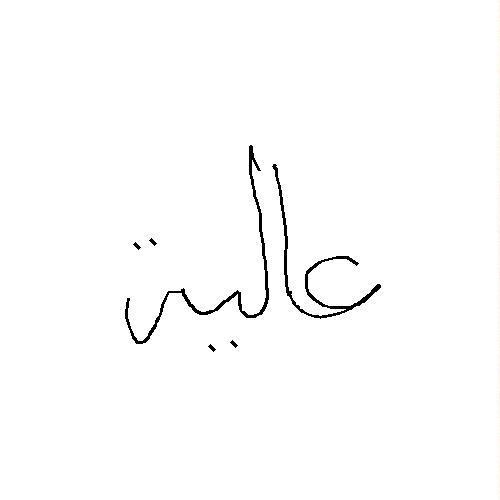 عالية